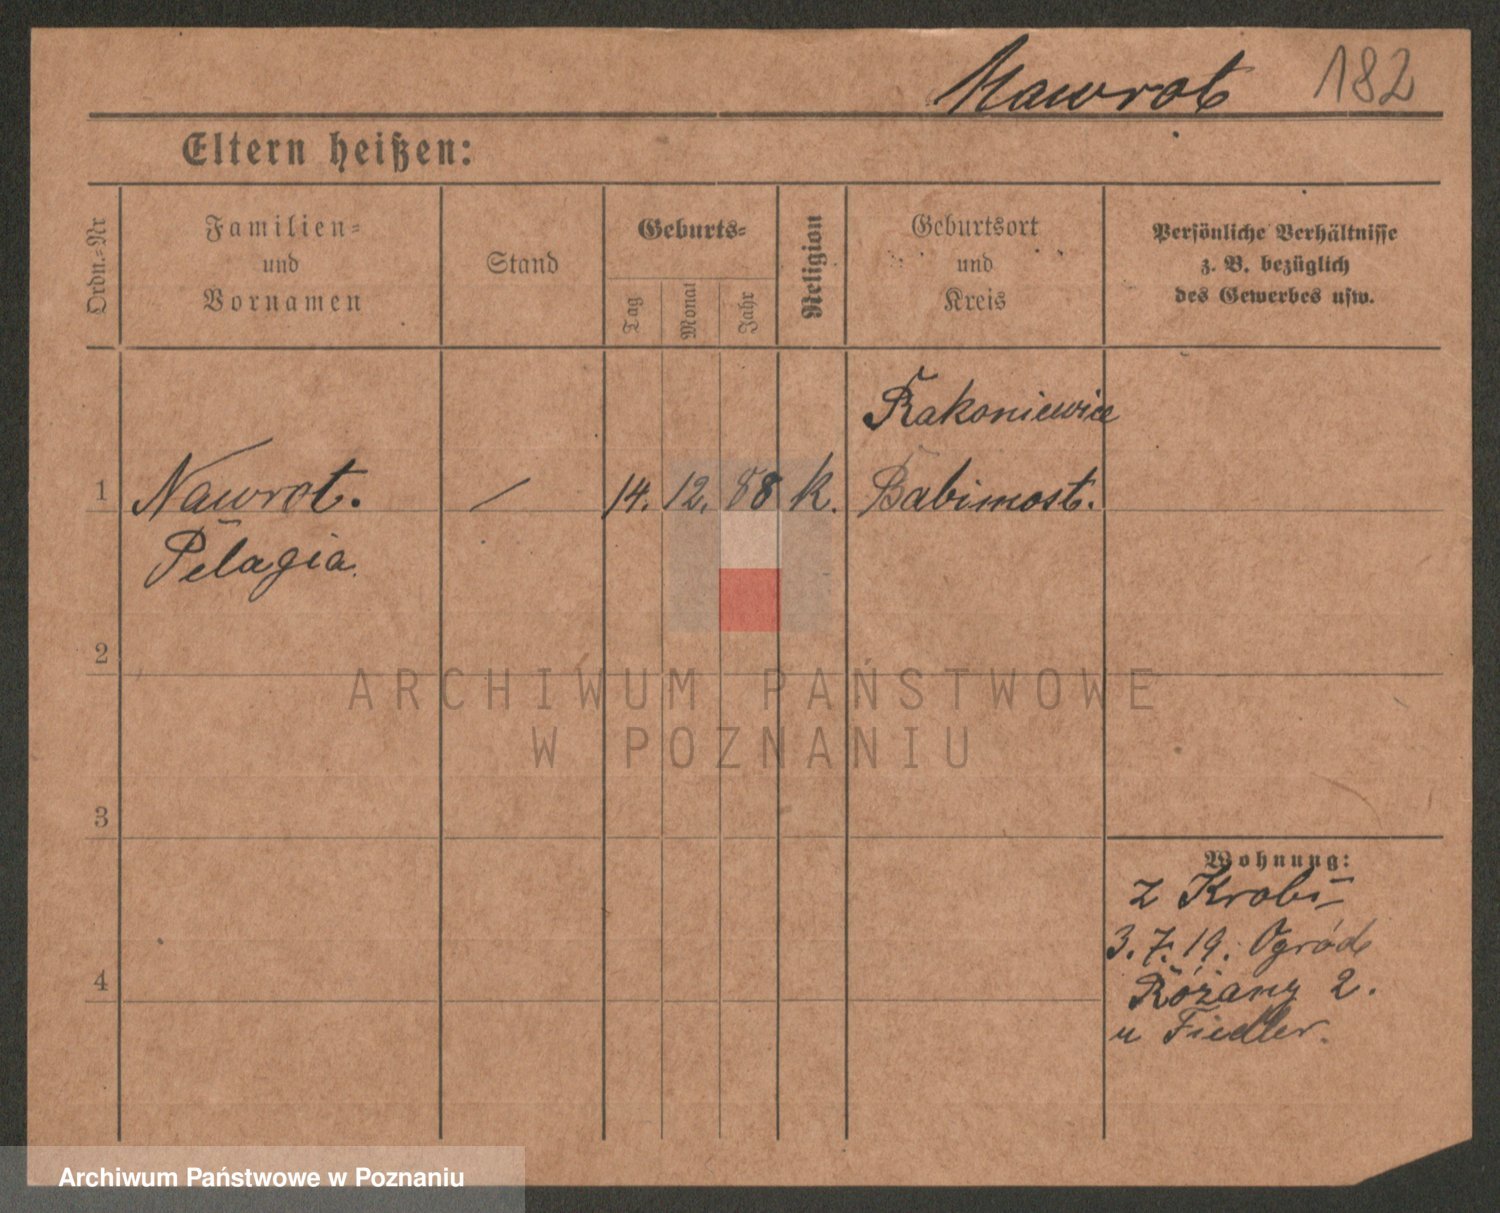 Nawrot 182
Eltern heißen:
Ordn.-Nr
Familien-
und
Vornamen
Stand
Geburts-
Tag
Monat
Jahr
Religion
Geburtsort
und
Kreis
Persönliche Verhältnisse
z. B. bezüglich
des Gewerbes usw.
Rakoniewice
1 Nawrot. / 14. 12. 88 k. Babimost.
Pelagia.
2
ARCHIWUM PAŃSTWOWE
W POZNANIU
3
Wohnung:
z Krobi
3.7.19. Ogród
4 Różany 2.
u Fiedler.
Archiwum Państwowe w Poznaniu